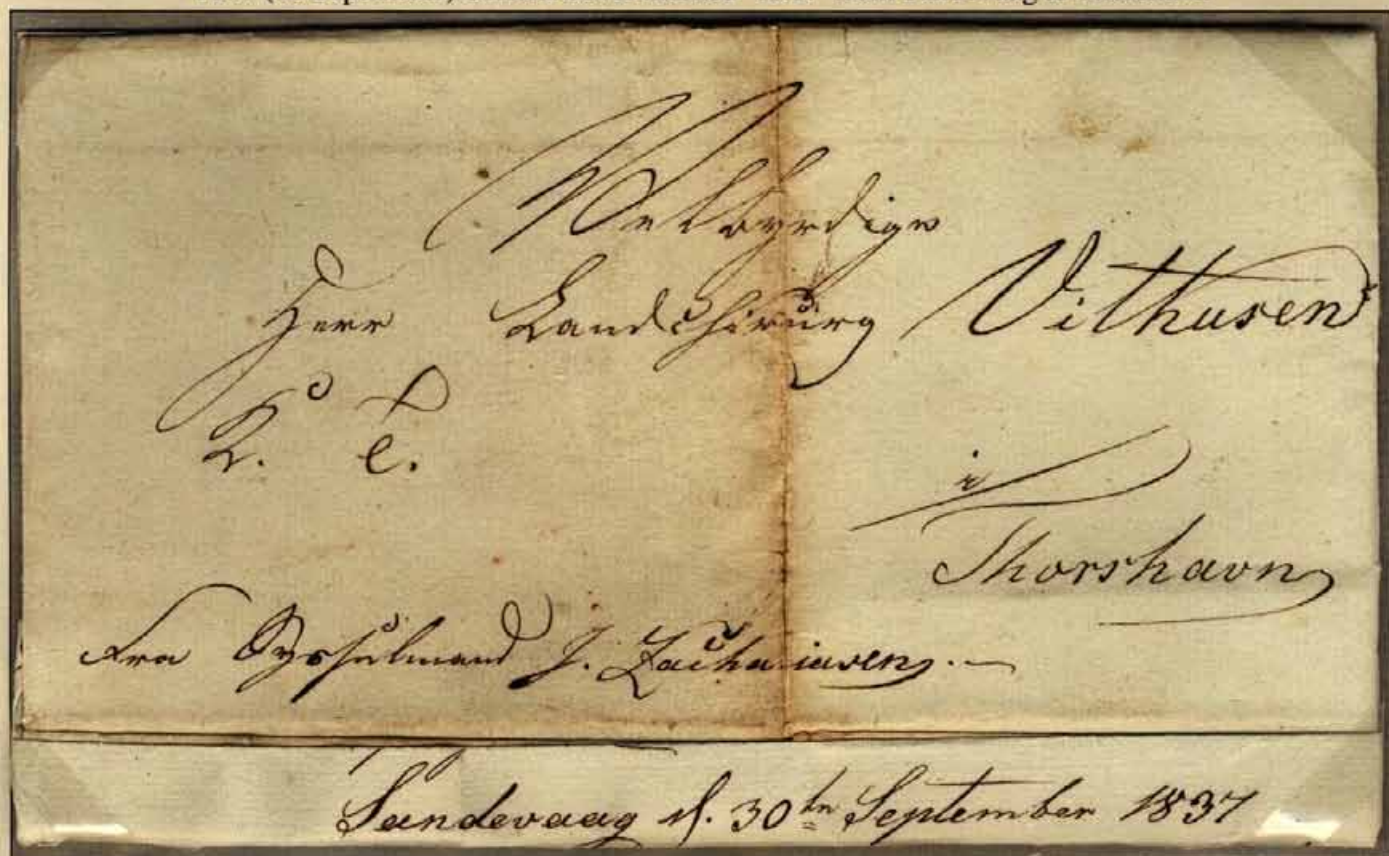 Velbyrdige
Herr Landchirurg Vithusen
K. T.
i
Thorshavn
Fra Sysselmand J. Zachariasen.
Sandevaag d. 30te September 1837